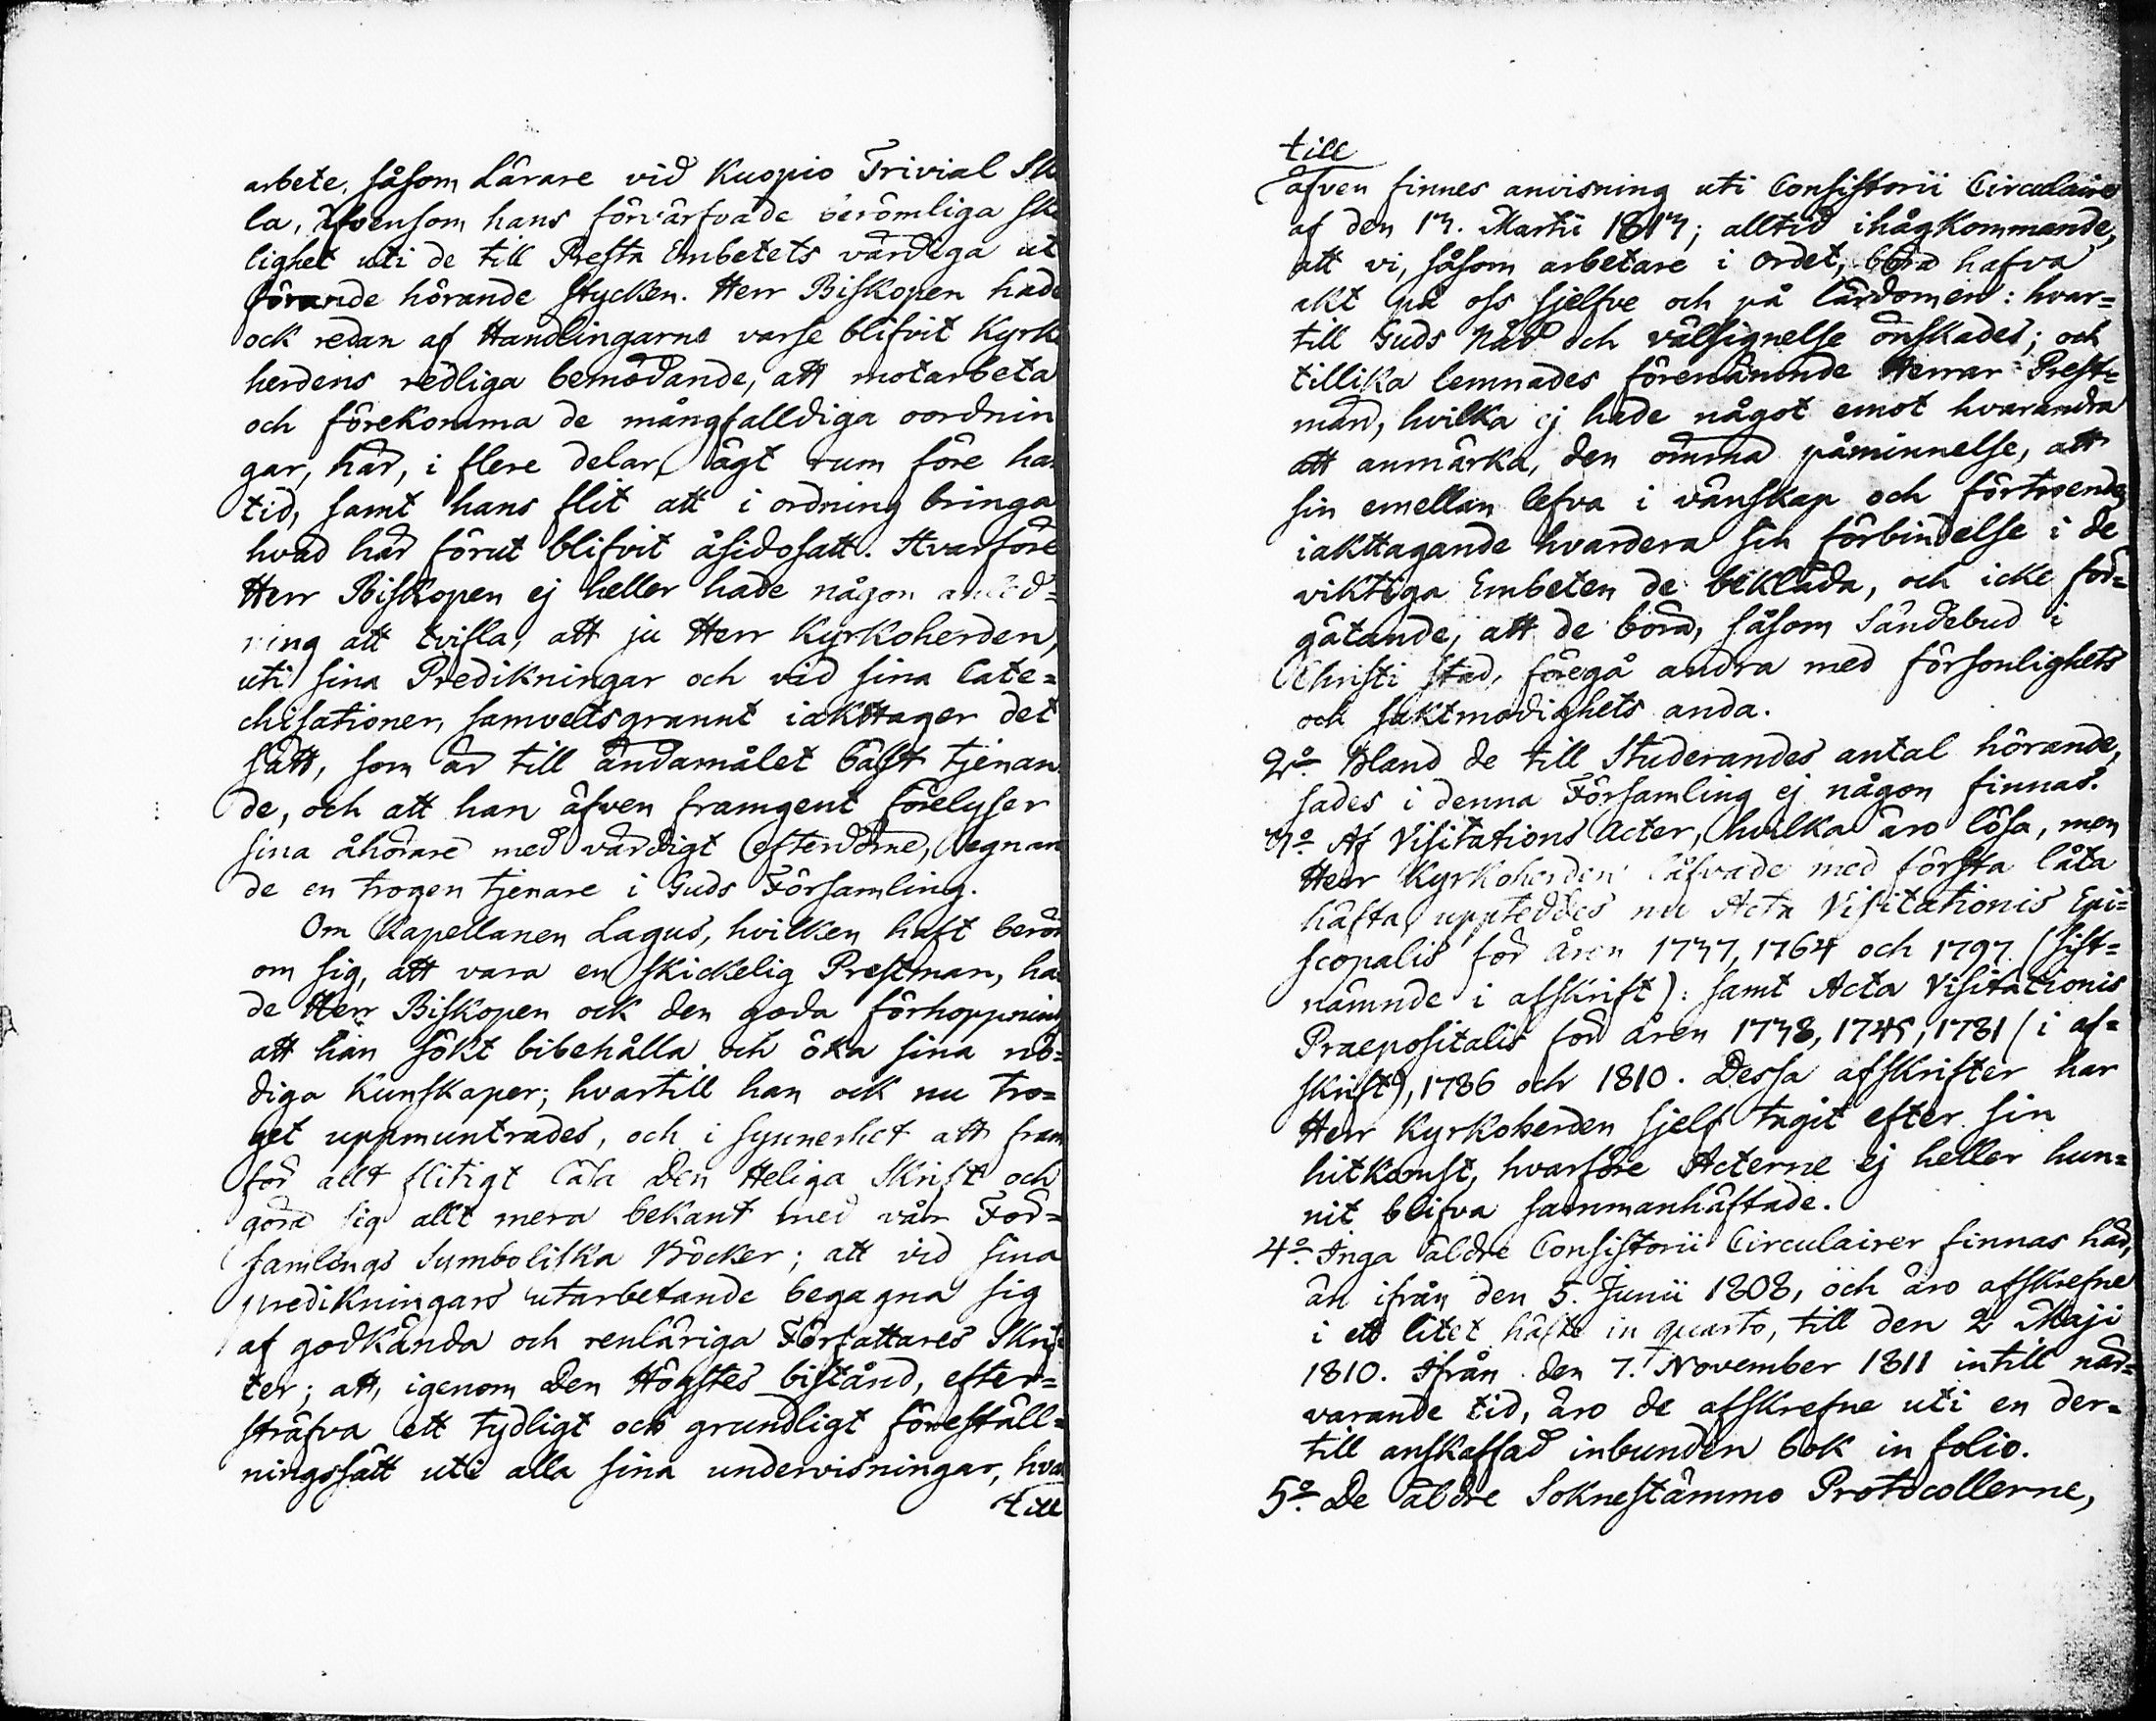 arbete, såsom Lärare vid Kuopio Trivial Sk
la, äfvensom hans förvärfvade berömliga ski
lighet uti de till Presta Embetets värdiga ut
förande hörande stycken. Herr Biskopen hade
ock redan af Handlingarne varse blifvit Kyrk
herdens redliga bemödande, att motarbeta
och förekomma de mångfalldiga oordnin
gar, här, i flere delar, ägt rum före ha
tid, samt hans flit att i ordning bringa
hvad här förut blifvit åsidosatt. Hvarföre
Herr Biskopen ej heller hade någon anled=
ning att tvifla, att ju Herr Kyrkoherden,
uti sina Predikningar och vid sina Cate=
chisationer, samvetsgrannt iakttager det
sätt, som är till ändamålet bäst tjenan
de, och att han äfven framgent förelyser
sina åhörare med värdigt efterdöme, egnan
de en trogen tjenare i Guds Församling.
Om Kapellanen Lagus, hvilken haft beröm
om sig, att vara en skickelig Prestman, ha
de Herr Biskopen ock den goda förhoppning
att han sökt bibehålla och öka sina nö=
diga Kunskaper; hvartill han ock nu tro=
get uppmuntrades, och i synnerhet att fram
för allt flitigt läsa Den Heliga Skrift och
göra sig allt mera bekant med vår För=
samlings Symboliska Böcker; att vid sina
predikningars utarbetande begagna sig
af godkända och renläriga Författares Skrif
ter; att, igenom Den Högstes bistånd, efter=
sträfva ett tydligt och grundligt föreställ=
ningssätt uti alla sina undervisningar, hvar
till
till
äfven finnes anvisning uti Consistorii Circulaire
af den 13. Martii 1813; alltid ihågkommande,
att vi, såsom arbetare i ordet, böra hafva
akt på oss sjelfve och på lärdomen: hvar=
till Guds Nåd och välsignelse önskades; och
tillika lemnades förenämnde Herrar Prest=
män, hvilka ej hade något emot hvarandra
att anmärka, den ömma påminnelse, att
sin emellan lefva i vänskap och förtroende,
iakttagande hvardera sin förbindelse i de
viktiga Embeten de bekläda, och icke för=
gätande, att de böra, såsom Sändebud i
Christi stad, föregå andra med försonlighets
och saktmodighets anda.
2o. Bland de till Studerandes antal hörande,
sades i denna Församling ej någon finnas.
3o. Af Visitations Acter, hvilka äro lösa, men
Herr Kyrkoherden låfvade med första låta
häfta, uppteddes nu Acta Visitationis Epi=
scopalis för åren 1737, 1764 och 1797 (sist=
nämnde i afskrift): samt Acta Visitationis
Praepositalis för åren 1738, 1745, 1781 (i af=
skrift), 1786 och 1810. Dessa afskrifter har
Herr Kyrkoherden sjelf tagit efter sin
hitkomst, hvarföre Acterne ej heller hun=
nit blifva sammanhäftade.
4o. Inga äldre Consistorii Circulairer finnas här,
än ifrån den 5. Junii 1808, och äro afskrefne
i ett litet häfte in quarto, till den 2 Maji
1810. Ifrån den 7. November 1811 intill när=
varande tid, äro de afskrefne uti en der=
till anskaffad inbunden bok in folio.
5o. De äldre Soknestämmo Protocollerne,